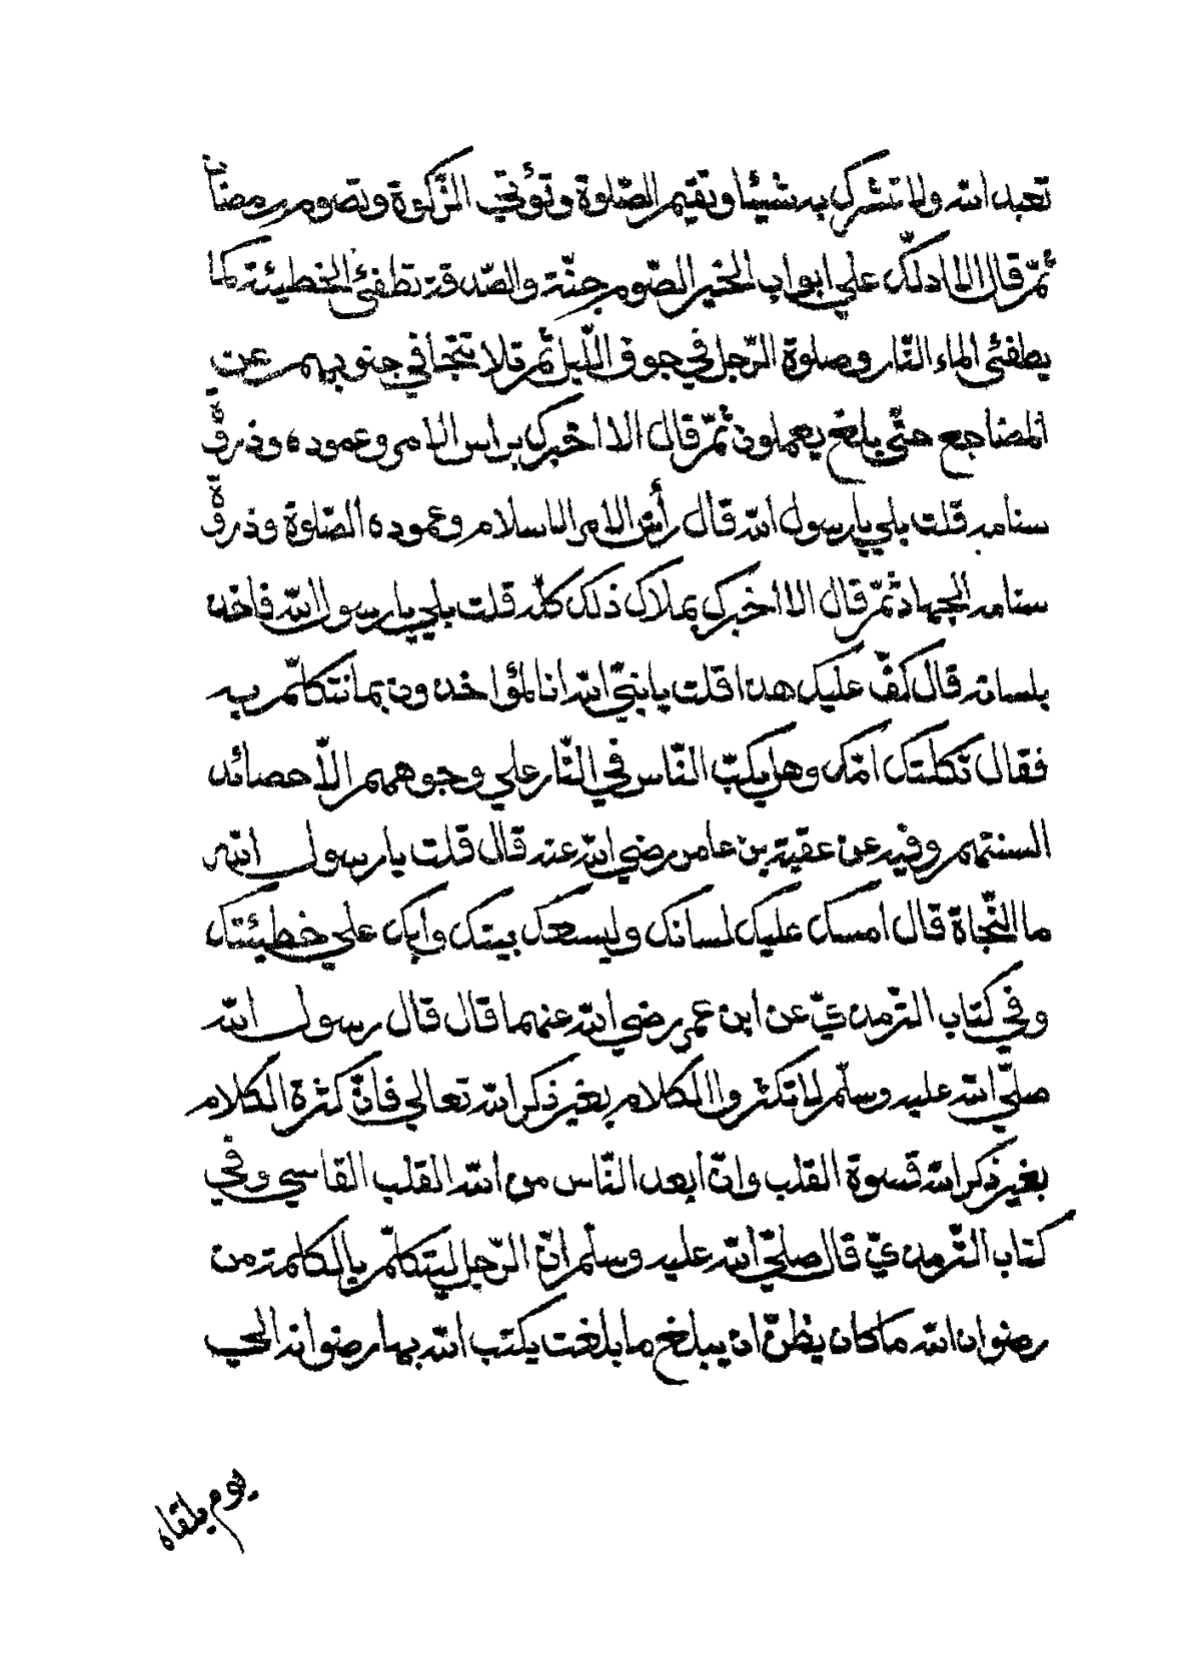 تعبد الله ولا تشرك به شيئا وتقيم الصّلوة وتؤتي الزّكوة وتصوم رمضان
ثمّ قال الا ادلّك علي ابواب الخير الصّوم جنّة والصّدقة تطفئ الخطيئة كما
يطفئ الماء النّار وصلوة الرّجل في جوف اللّيل ثم تلا تتجافي جنوبهم عن
المضاجع حتّي بلغ يعملون ثمّ قال الا اخبرك براس الامر وعموده وذروة
سنامه قلت بلي يا رسول الله قال رأس الامر الاسلام وعموده الصّلوة وذروة
سنامه الجهاد ثمّ قال الا اخبرك بملاك ذلك كلّه قلت بلي يا رسول الله فاخذ
بلسانه قال كفّ عليك هذا قلت يا نبيّ الله انا لمؤاخذون بما نتكلّم به
فقال ثكلتك امّك وهل يكبّ النّاس في النّار علي وجوههم الّا حصائد
السنتهم وفيه عن عقبة بن عامر رضي الله عنه قال قلت يا رسول الله
ما النّجاة قال امسك عليك لسانك وليسعك بيتك وابك علي خطيئتك
وفي كتاب التّرمذيّ عن ابن عمر رضي الله عنهما قال قال رسول الله
صلّي الله عليه وسلّم لا تكثروا الكلام بغير ذكر الله تعالي فانّ كثرة الكلام
بغير ذكر الله قسوة القلب وانّ ابعد النّاس من الله القلب القاسي وفي
كتاب التّرمذيّ قال صلّي الله عليه وسلّم انّ الرّجل ليتكلّم بالكلمة من
رضوان الله ما كان يظنّ ان يبلغ ما بلغت يكتب الله بها رضوانه الي
يوم يلقاه